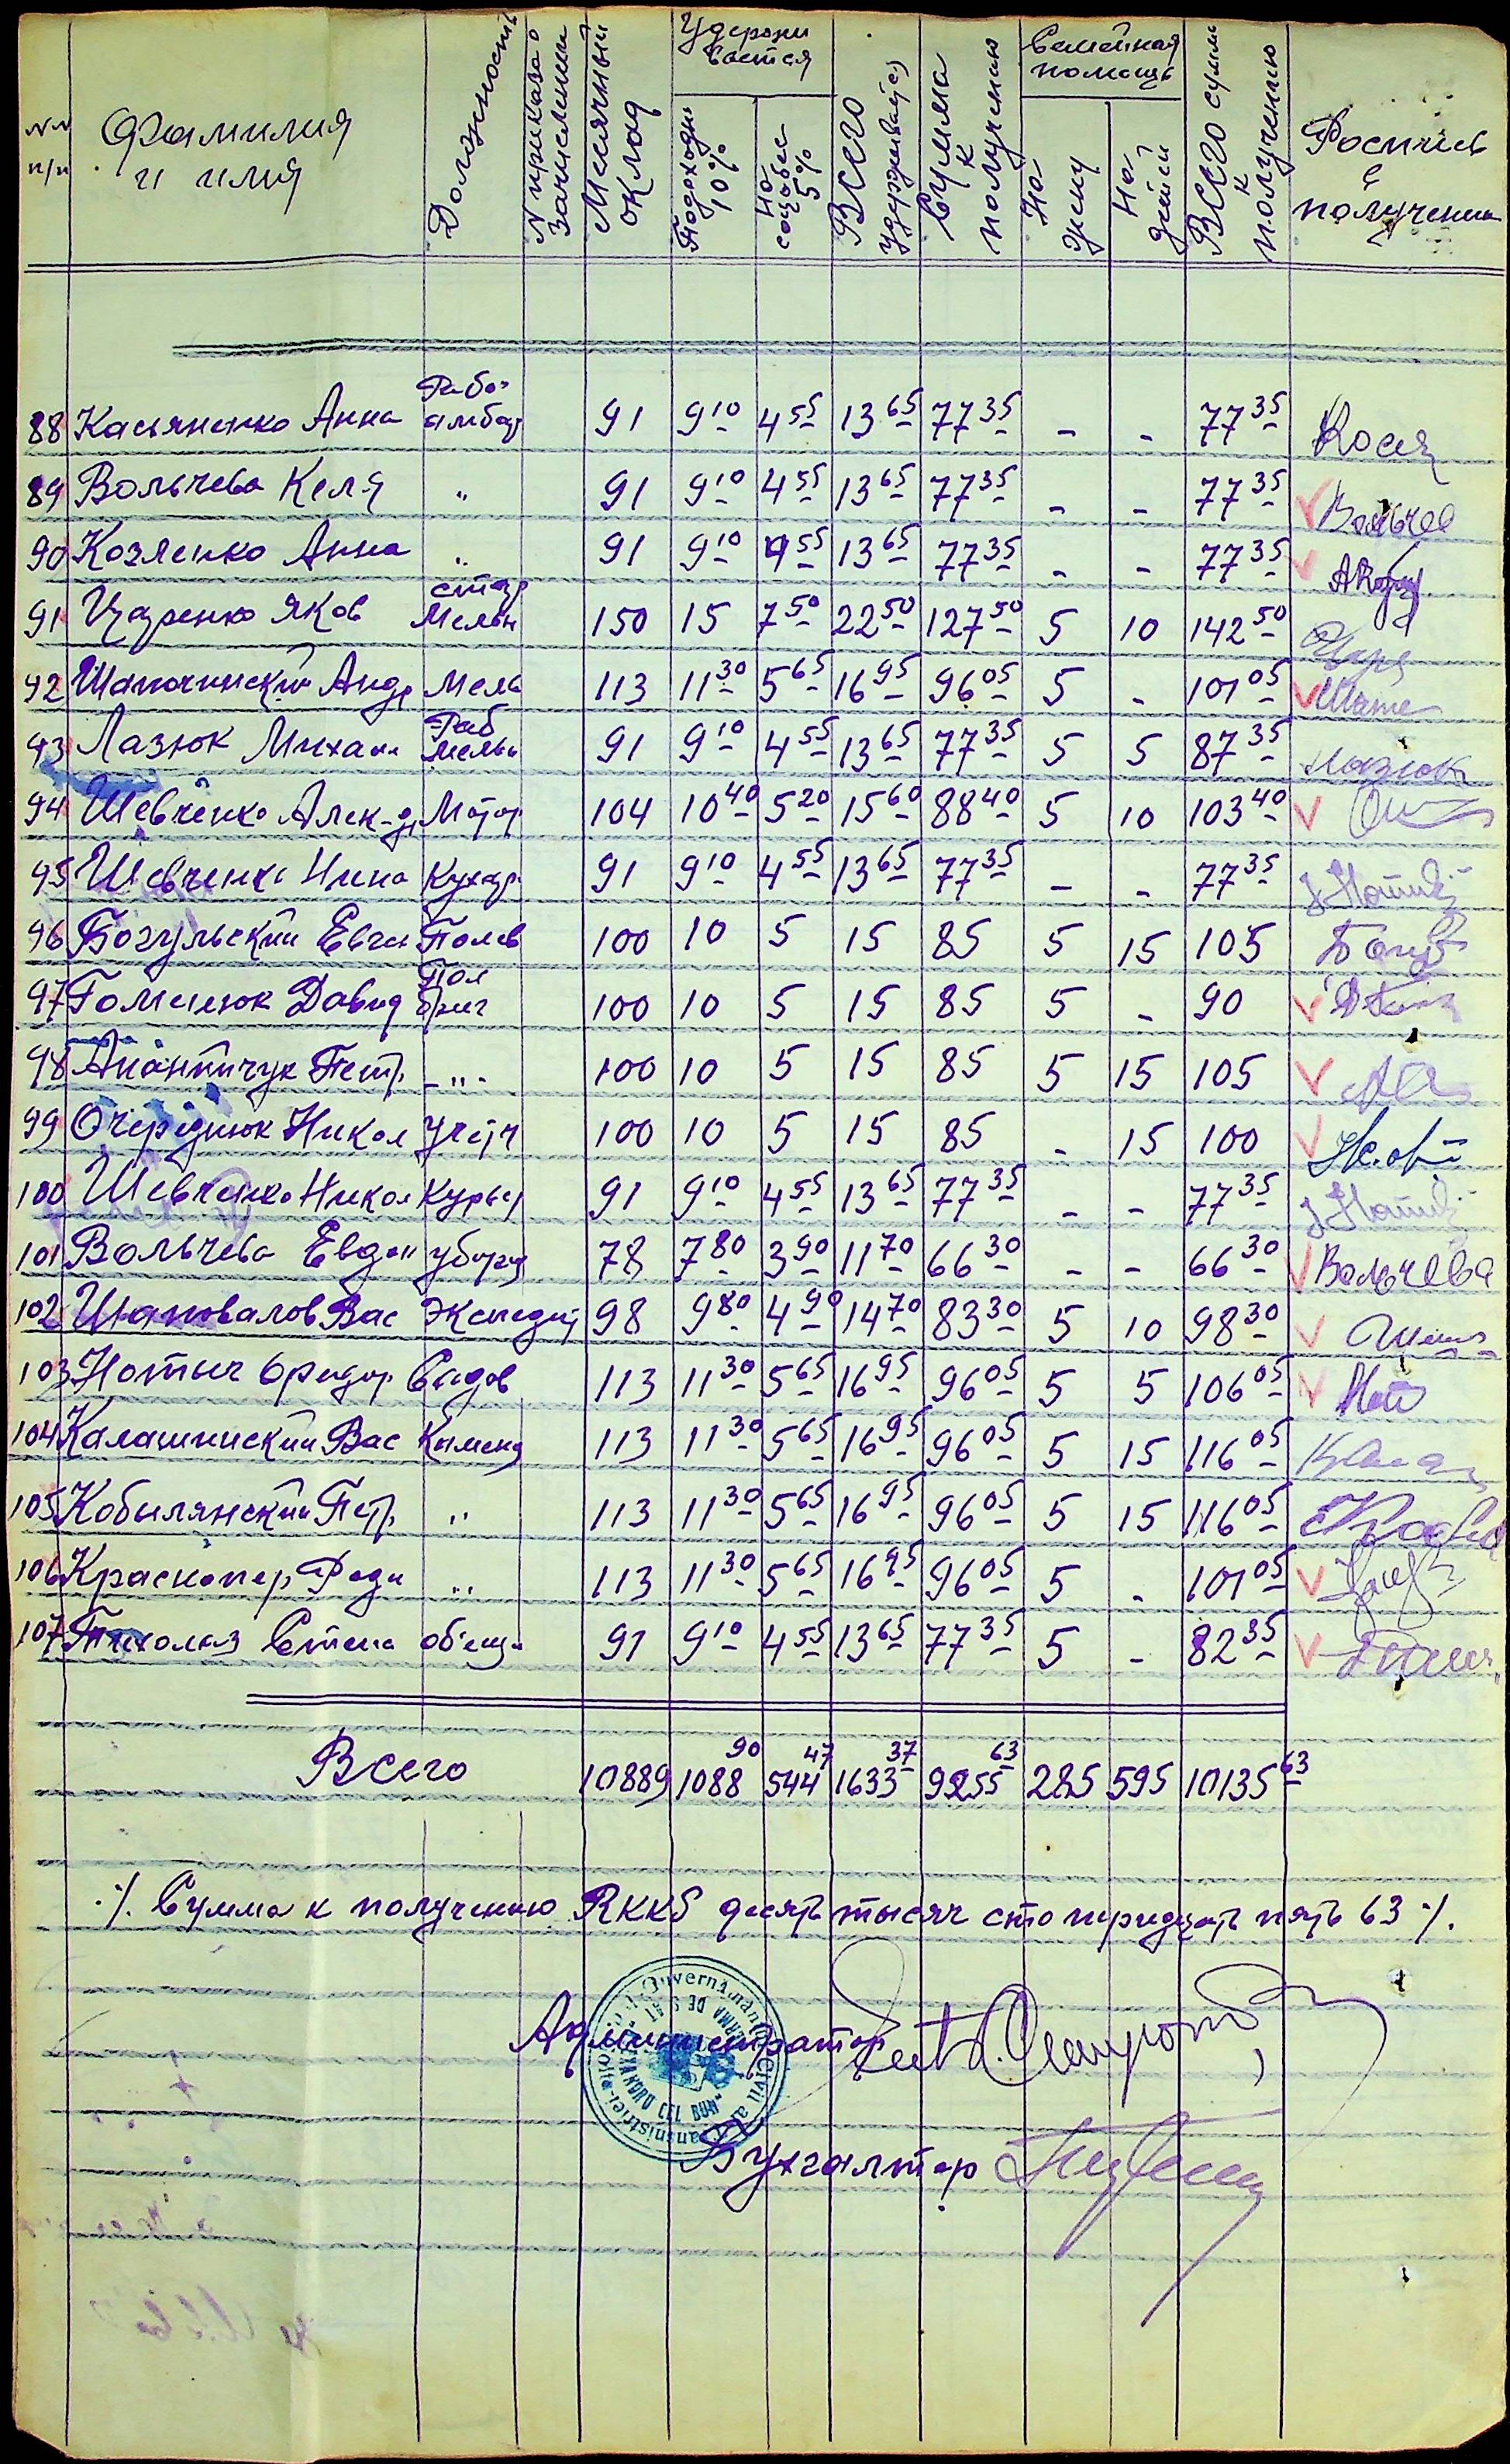 NN п/п Фамилия и имя Должность N приказа о зачислении Месячный оклад Удерживается Подоходн 10% На соцобес 5% Всего удерживается Сумма к получению Семейная помощь На жену На детей Всего сумм к получению Роспись в получении
88 Касьяненко Анна Рабо- амбар 91 9 10 4 55 13 65 77 35 - - 77 35
89 Вольчева Келя " 91 9 10 4 55 13 65 77 35 - - 77 35 Вольчев
90 Козленко Анна " 91 9 10 4 55 13 65 77 35 - - 77 35
91 Царенко Яков стар Мельн 150 15 7 50 22 50 127 50 5 10 142 50 Царе
92 Шапочинский Андр Мель 113 11 30 5 65 16 95 96 05 5 - 101 05
93 Лазюк Михаил Раб мельн 91 9 10 4 55 13 65 77 35 5 5 87 35 Лазюк
94 Шевченко Алек-др Мотор 104 10 40 5 20 15 60 88 40 5 10 103 40
95 Шевченко Нина Кухар 91 9 10 4 55 13 65 77 35 - - 77 35
96 Богульский Евген Полев 100 10 5 15 85 5 15 105
97 Гоменюк Давид Пол бриг 100 10 5 15 85 5 - 90
98 Анантичук Петр -"- 100 10 5 15 85 5 15 105
99 Очереднюк Никол Учетч 100 10 5 15 85 - 15 100
100 Шевченко Никол Курьер 91 9 10 4 55 13 65 77 35 - - 77 35
101 Вольчева Евдок уборщ 78 7 80 3 90 11 70 66 30 - - 66 30 Вольчева
102 Шаповалов Вас Экспедит 98 9 80 4 90 14 70 83 30 5 10 98 30
103 Нотыч Федор Садов 113 11 30 5 65 16 95 96 05 5 5 106 05
104 Калашинский Вас Каменщ 113 11 30 5 65 16 95 96 05 5 15 116 05
105 Кобылянский Петр " 113 11 30 5 65 16 95 96 05 5 15 116 05
106 Краснопер Роди " 113 11 30 5 65 16 95 96 05 5 - 101 05
107 Пихолаз Степа объещ 91 9 10 4 55 13 65 77 35 5 - 82 35
Всего 10889 1088 90 544 47 1633 37 9255 63 285 595 10135 63
./. Сумма к получению RKKS десять тысяч сто тридцать пять 63 ./.
Администратор
Бухгалтер